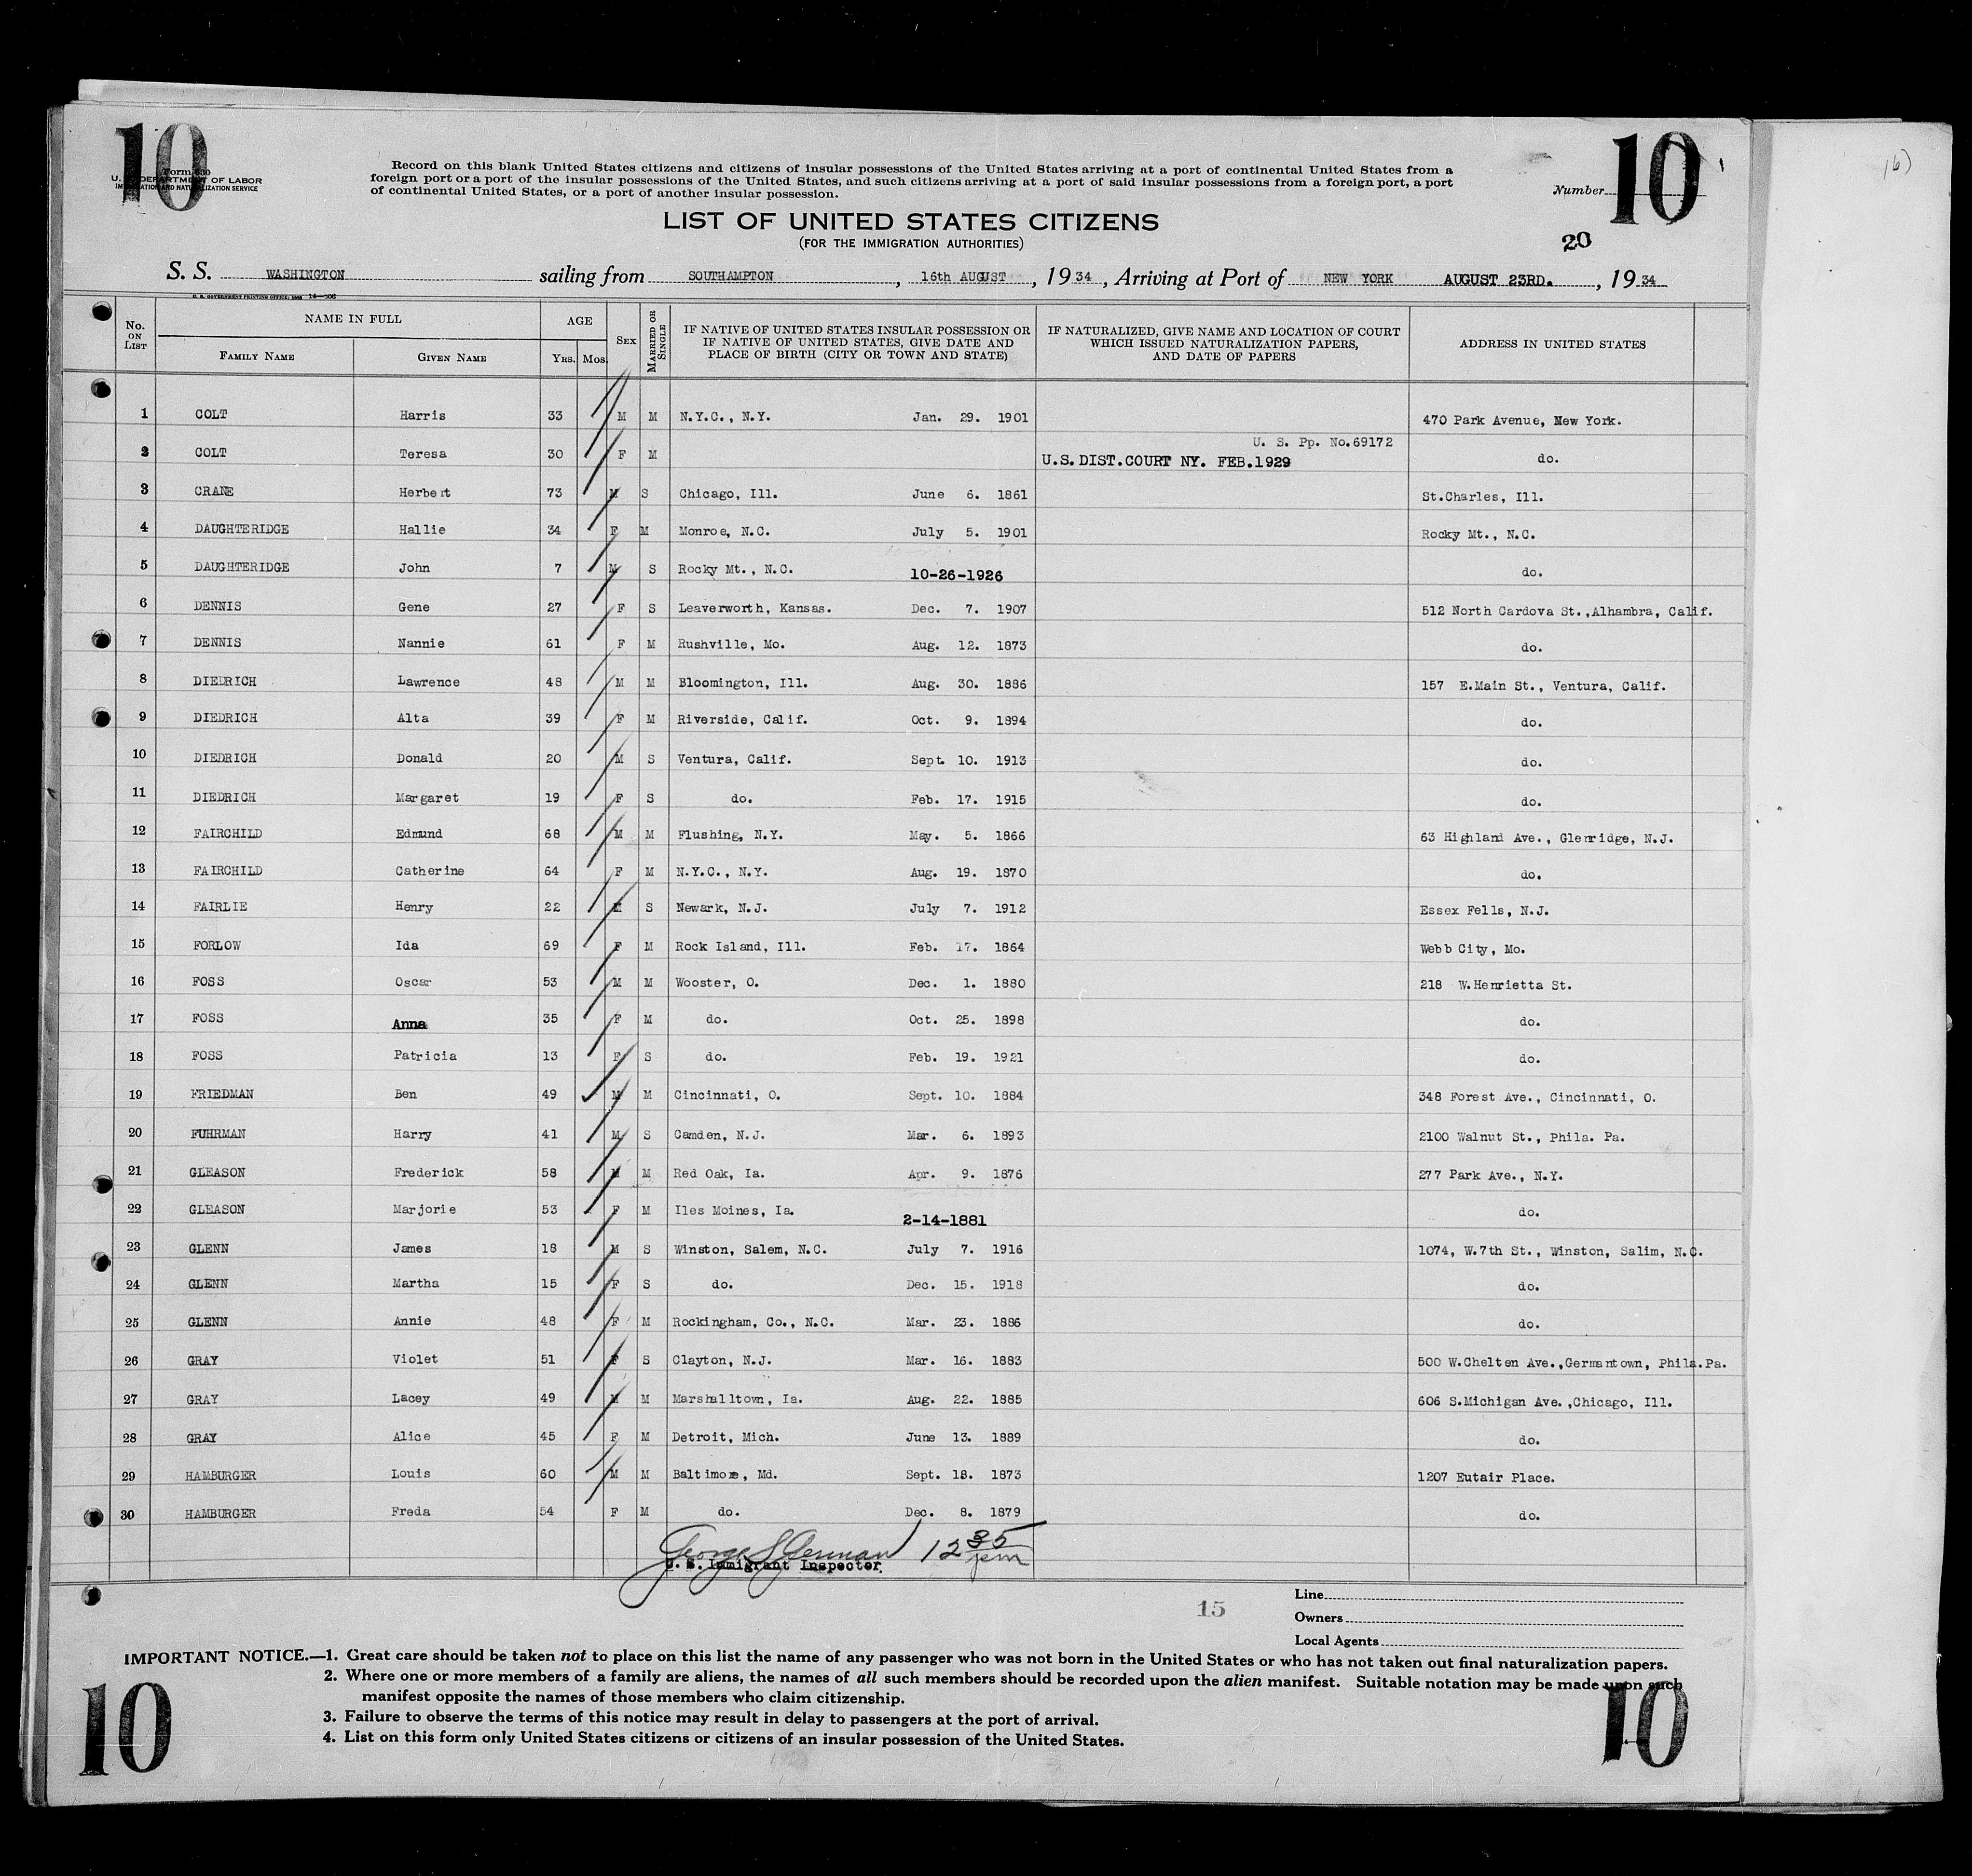 10
10
16)
Form 630
U. S. DEPARTMENT OF LABOR
IMMIGRATION AND NATURALIZATION SERVICE
Record on this blank United States citizens and citizens of insular possessions of the United States arriving at a port of continental United States from a
foreign port or a port of the insular possessions of the United States, and such citizens arriving at a port of said insular possessions from a foreign port, a port
of continental United States, or a port of another insular possession.
Number
LIST OF UNITED STATES CITIZENS
(FOR THE IMMIGRATION AUTHORITIES)
20
S. S. WASHINGTON sailing from SOUTHAMPTON, 16th AUGUST, 1934, Arriving at Port of NEW YORK AUGUST 23RD., 1934
U. S. GOVERNMENT PRINTING OFFICE: 14—506
No. ON LIST NAME IN FULL FAMILY NAME GIVEN NAME AGE YRS. MOS. SEX MARRIED OR SINGLE IF NATIVE OF UNITED STATES INSULAR POSSESSION OR IF NATIVE OF UNITED STATES, GIVE DATE AND PLACE OF BIRTH (CITY OR TOWN AND STATE) IF NATURALIZED, GIVE NAME AND LOCATION OF COURT WHICH ISSUED NATURALIZATION PAPERS, AND DATE OF PAPERS ADDRESS IN UNITED STATES
1 COLT Harris 33 M M N.Y.C., N.Y. Jan. 29. 1901 470 Park Avenue, New York.
U. S. Pp. No.69172
2 COLT Teresa 30 F M U.S.DIST.COURT NY. FEB.1929 do.
3 CRANE Herbert 73 M S Chicago, Ill. June 6. 1861 St.Charles, Ill.
4 DAUGHTERIDGE Hallie 34 F M Monroe, N.C. July 5. 1901 Rocky Mt., N.C.
5 DAUGHTERIDGE John 7 M S Rocky Mt., N.C. 10-26-1926 do.
6 DENNIS Gene 27 F S Leaverworth, Kansas. Dec. 7. 1907 512 North Cardova St.,Alhambra, Calif.
7 DENNIS Nannie 61 F M Rushville, Mo. Aug. 12. 1873 do.
8 DIEDRICH Lawrence 48 M M Bloomington, Ill. Aug. 30. 1886 157 E.Main St., Ventura, Calif.
9 DIEDRICH Alta 39 F M Riverside, Calif. Oct. 9. 1894 do.
10 DIEDRICH Donald 20 M S Ventura, Calif. Sept. 10. 1913 do.
11 DIEDRICH Margaret 19 F S do. Feb. 17. 1915 do.
12 FAIRCHILD Edmund 68 M M Flushing, N.Y. May. 5. 1866 63 Highland Ave., Glenridge, N.J.
13 FAIRCHILD Catherine 64 F M N.Y.C., N.Y. Aug. 19. 1870 do.
14 FAIRLIE Henry 22 M S Newark, N.J. July 7. 1912 Essex Fells, N.J.
15 FORLOW Ida 69 F M Rock Island, Ill. Feb. 17. 1864 Webb City, Mo.
16 FOSS Oscar 53 M M Wooster, O. Dec. 1. 1880 218 W.Henrietta St.
17 FOSS Anna 35 F M do. Oct. 25. 1898 do.
18 FOSS Patricia 13 F S do. Feb. 19. 1921 do.
19 FRIEDMAN Ben 49 M M Cincinnati, O. Sept. 10. 1884 348 Forest Ave., Cincinnati, O.
20 FUHRMAN Harry 41 M S Camden, N.J. Mar. 6. 1893 2100 Walnut St., Phila. Pa.
21 GLEASON Frederick 58 M M Red Oak, Ia. Apr. 9. 1876 277 Park Ave., N.Y.
22 GLEASON Marjorie 53 F M Iles Moines, Ia. 2-14-1881 do.
23 GLENN James 18 M S Winston, Salem, N.C. July 7. 1916 1074, W.7th St., Winston, Salim, N.C.
24 GLENN Martha 15 F S do. Dec. 15. 1918 do.
25 GLENN Annie 48 F M Rockingham, Co., N.C. Mar. 23. 1886 do.
26 GRAY Violet 51 F S Clayton, N.J. Mar. 16. 1883 500 W.Chelten Ave.,Germantown, Phila.Pa.
27 GRAY Lacey 49 M M Marshalltown, Ia. Aug. 22. 1885 606 S.Michigan Ave.,Chicago, Ill.
28 GRAY Alice 45 F M Detroit, Mich. June 13. 1889 do.
29 HAMBURGER Louis 60 M M Baltimore, Md. Sept. 18. 1873 1207 Eutair Place.
30 HAMBURGER Freda 54 F M do. Dec. 8. 1879 do.
George S. 12 35 pm
U. S. Immigrant Inspector
15
Line
Owners
Local Agents
IMPORTANT NOTICE.—1. Great care should be taken not to place on this list the name of any passenger who was not born in the United States or who has not taken out final naturalization papers.
2. Where one or more members of a family are aliens, the names of all such members should be recorded upon the alien manifest. Suitable notation may be made upon such
manifest opposite the names of those members who claim citizenship.
3. Failure to observe the terms of this notice may result in delay to passengers at the port of arrival.
4. List on this form only United States citizens or citizens of an insular possession of the United States.
10
10